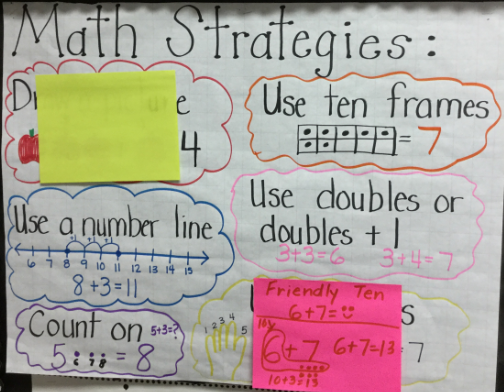 Math Strategies:
4
Use ten frames
= 7
Use a number line
+1 +1 +1
6 7 8 9 10 11 12 13 14 15
8+3=11
Use doubles or
doubles + 1
3+3=6 3+4=7
Count on 5+3=?
5 6 7 8 = 8
1 2 3 4 5
s
7
Friendly Ten
6+7=
6+7 6+7=13
10+3=13